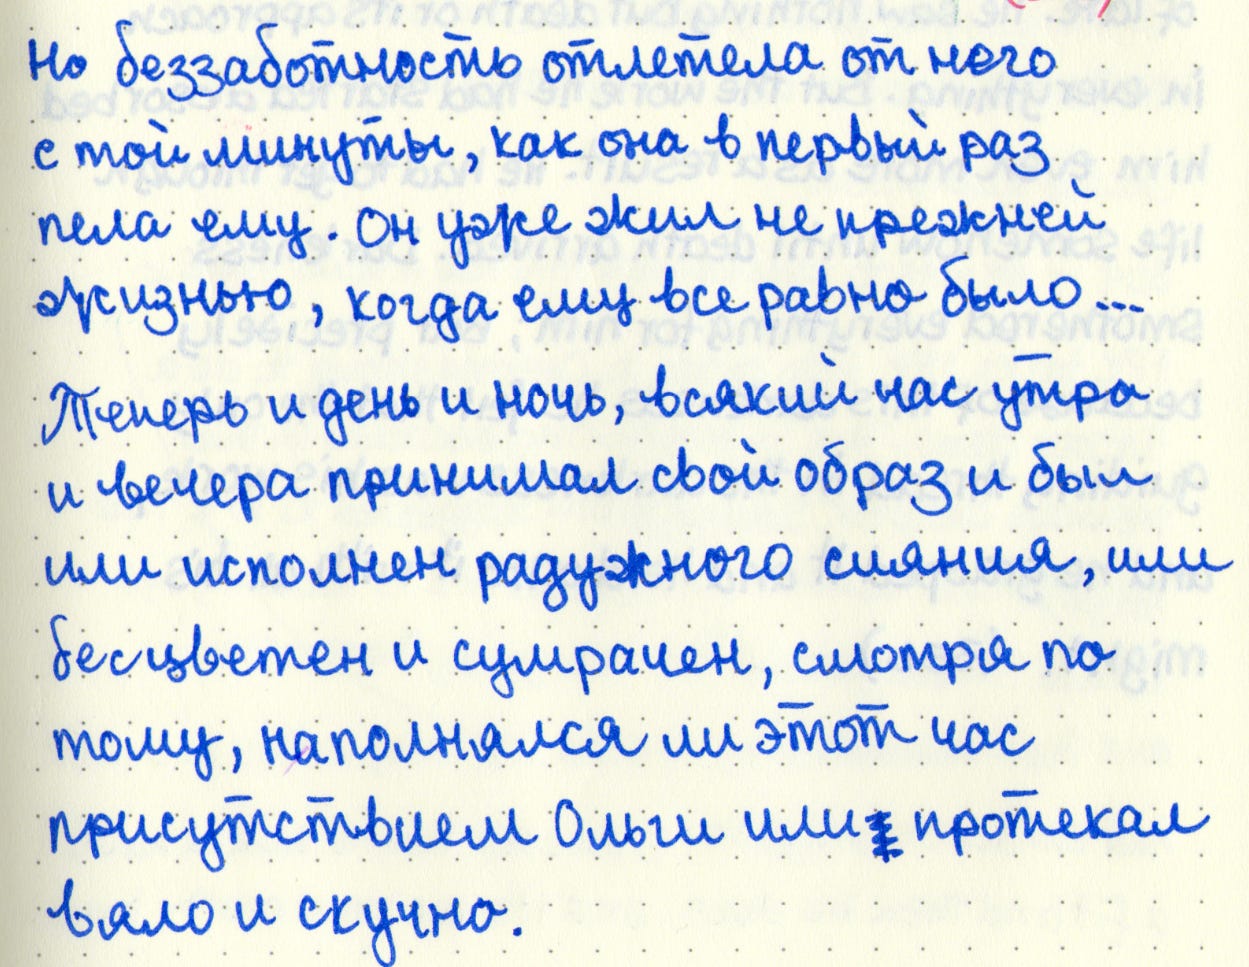 Но беззаботность отлетела от него
с той минуты, как она в первый раз
пела ему. Он уже жил не прежней
жизнью, когда ему все равно было...
Теперь и день и ночь, всякий час утра
и вечера принимал свой образ и был
или исполнен радужного сияния, или
бесцветен и сумрачен, смотря по
тому, наполнялся ли этот час
присутствием Ольги или протекал
вяло и скучно.